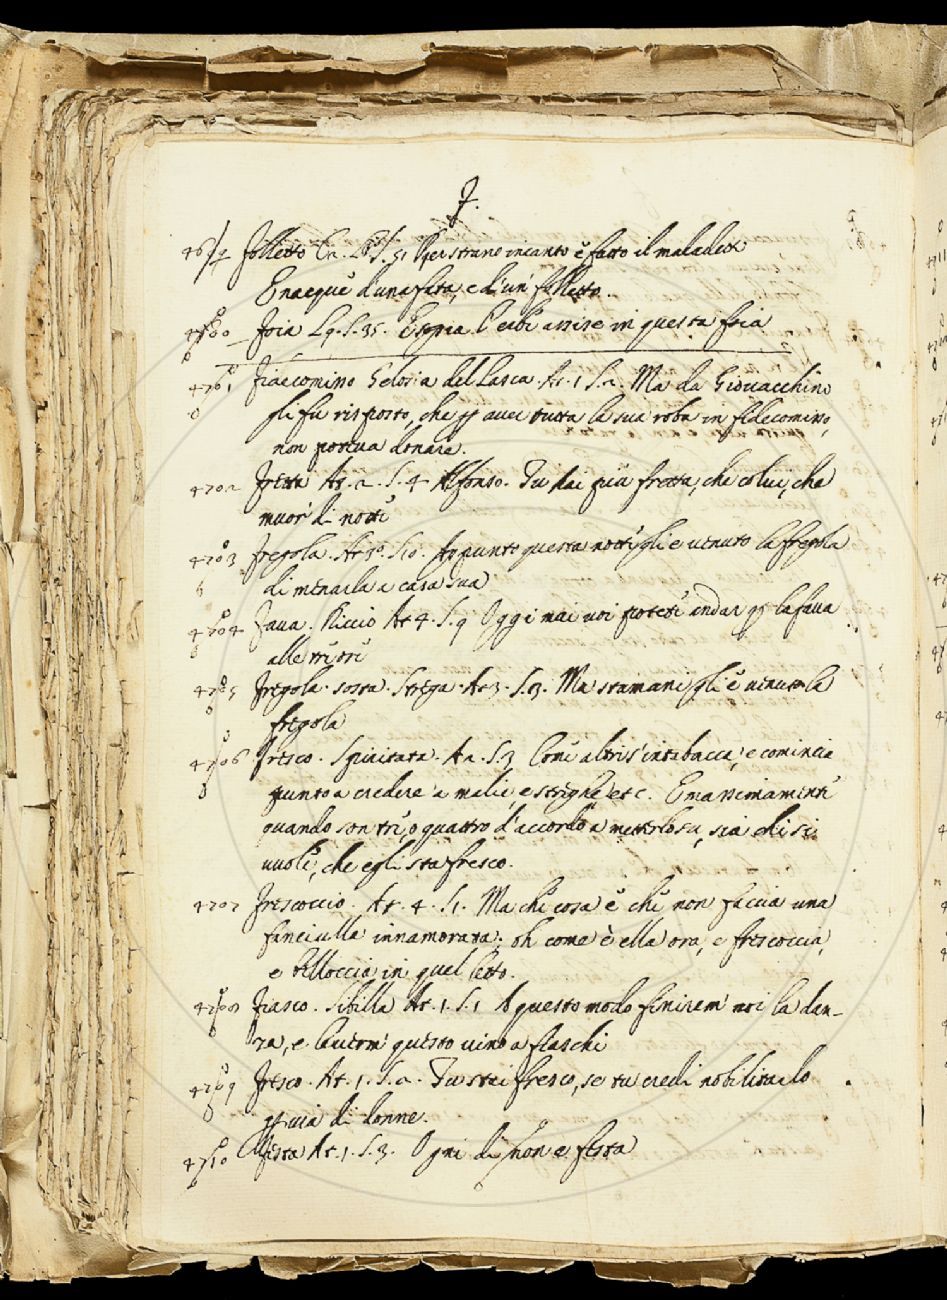 F.
Folletto Cr. S. 51 Per strano incanto è fatto il maladett
E nacque d'una fata, e d'un folletto.
4700 Foia L9. S. 35. in questa foia
4701 Fidecomino Gelosia del Lasca At. 1 S. 2. Ma da Giovacchino
gli fu risposto, che p aver tutta la sua roba in fidecomino,
non poteva donare.
4702 Fretta At. 2. S. 4 Alfonso. Tu hai più fretta, che colui, che
muor di notte
4703 Fregola. At. 5. S. 10. Appunto questa notte gli è venuto la fregola
di menarla a casa sua
4704 Fava. Riccio At 4. S. 9 Oggi mai voi potete andar p la fava
alle tre ore
4705 Fregola. sorta. Strega. At 3. S. 3. Ma stamani gli è venuto la
fregola
4706 Fresco. Spiritata. At. S. 3 Com' altri s'imbocca, e comincia
punto a credere a malie, e streghe etc. E massimamente
quando son tre, o quattro d'accordo a metterlo su, sia chi si
vuole, che egli sta fresco.
4707 Frescoccio. At. 4. S. 1. Ma che cosa è che non faccia una
fanciulla innamorata; oh come è ella ora, e frescoccia,
e belloccia in quel letto.
4708 Fiasco. Sibilla At. 1. S. 1 A questo modo finirem noi la dan-
za, e questo vino a fiaschi
4709 Fresco. At. 1. S. 2. Tu stai fresco, se tu credi nobilitarlo
p via di donne.
4710 Festa At. 1. S. 3. Ogni dì non è festa